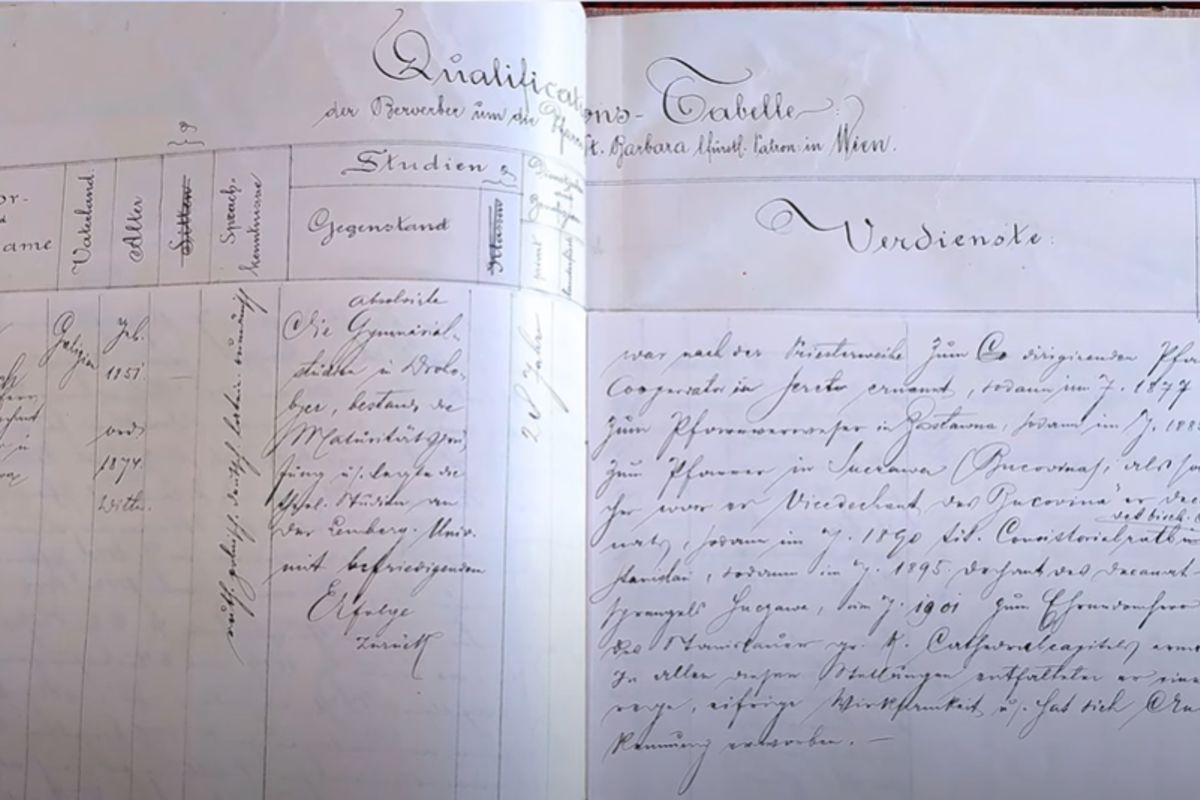 Qualifications-Tabelle
der Bewerber um die Pfarre St. Barbara lfürstl. Patron: in Wien.
or-
ame
Vaterland.
Alter
Sitten
Sprach-
kenntnisse
Studien
Gegenstand
Klassen
Verdienste:
Galizien
Geb.
1851.
ord.
1874.
Witw.
ruth. polnisch deutsch latein rumänisch
absolvirte
die Gymnasial-
studien in Droho-
bycz, bestand die
Maturitätsprü-
fung u. legte die
theol. Studien an
der Lemberg. Univ.
mit befriedigendem
Erfolge
zurück
28 Jahre
war nach der Priesterweihe zum Co dirigirenden Pfar
Cooperator in Sereth ernannt, sodann im J. 1877
zum Pfarrverweser in sodann im J. 188
zum Pfarrer in Suczawa (Bucovina), als sol
cher war er Vicedechant des Bucovina'er Deca
nats, sodann im J. 1890 tit. Consistorialrath
Stanislau, sodann im J. 1895 Dechant des Decanat-
sprengels Suczawa, im J. 1901 zum Ehrendomherrn
des Stanislauer gr. k. Cathedralcapitels erna
In allen diesen Stellungen entfaltete er eine
rege, eifrige Wirksamkeit u. hat sich Aner
kennung erworben. —